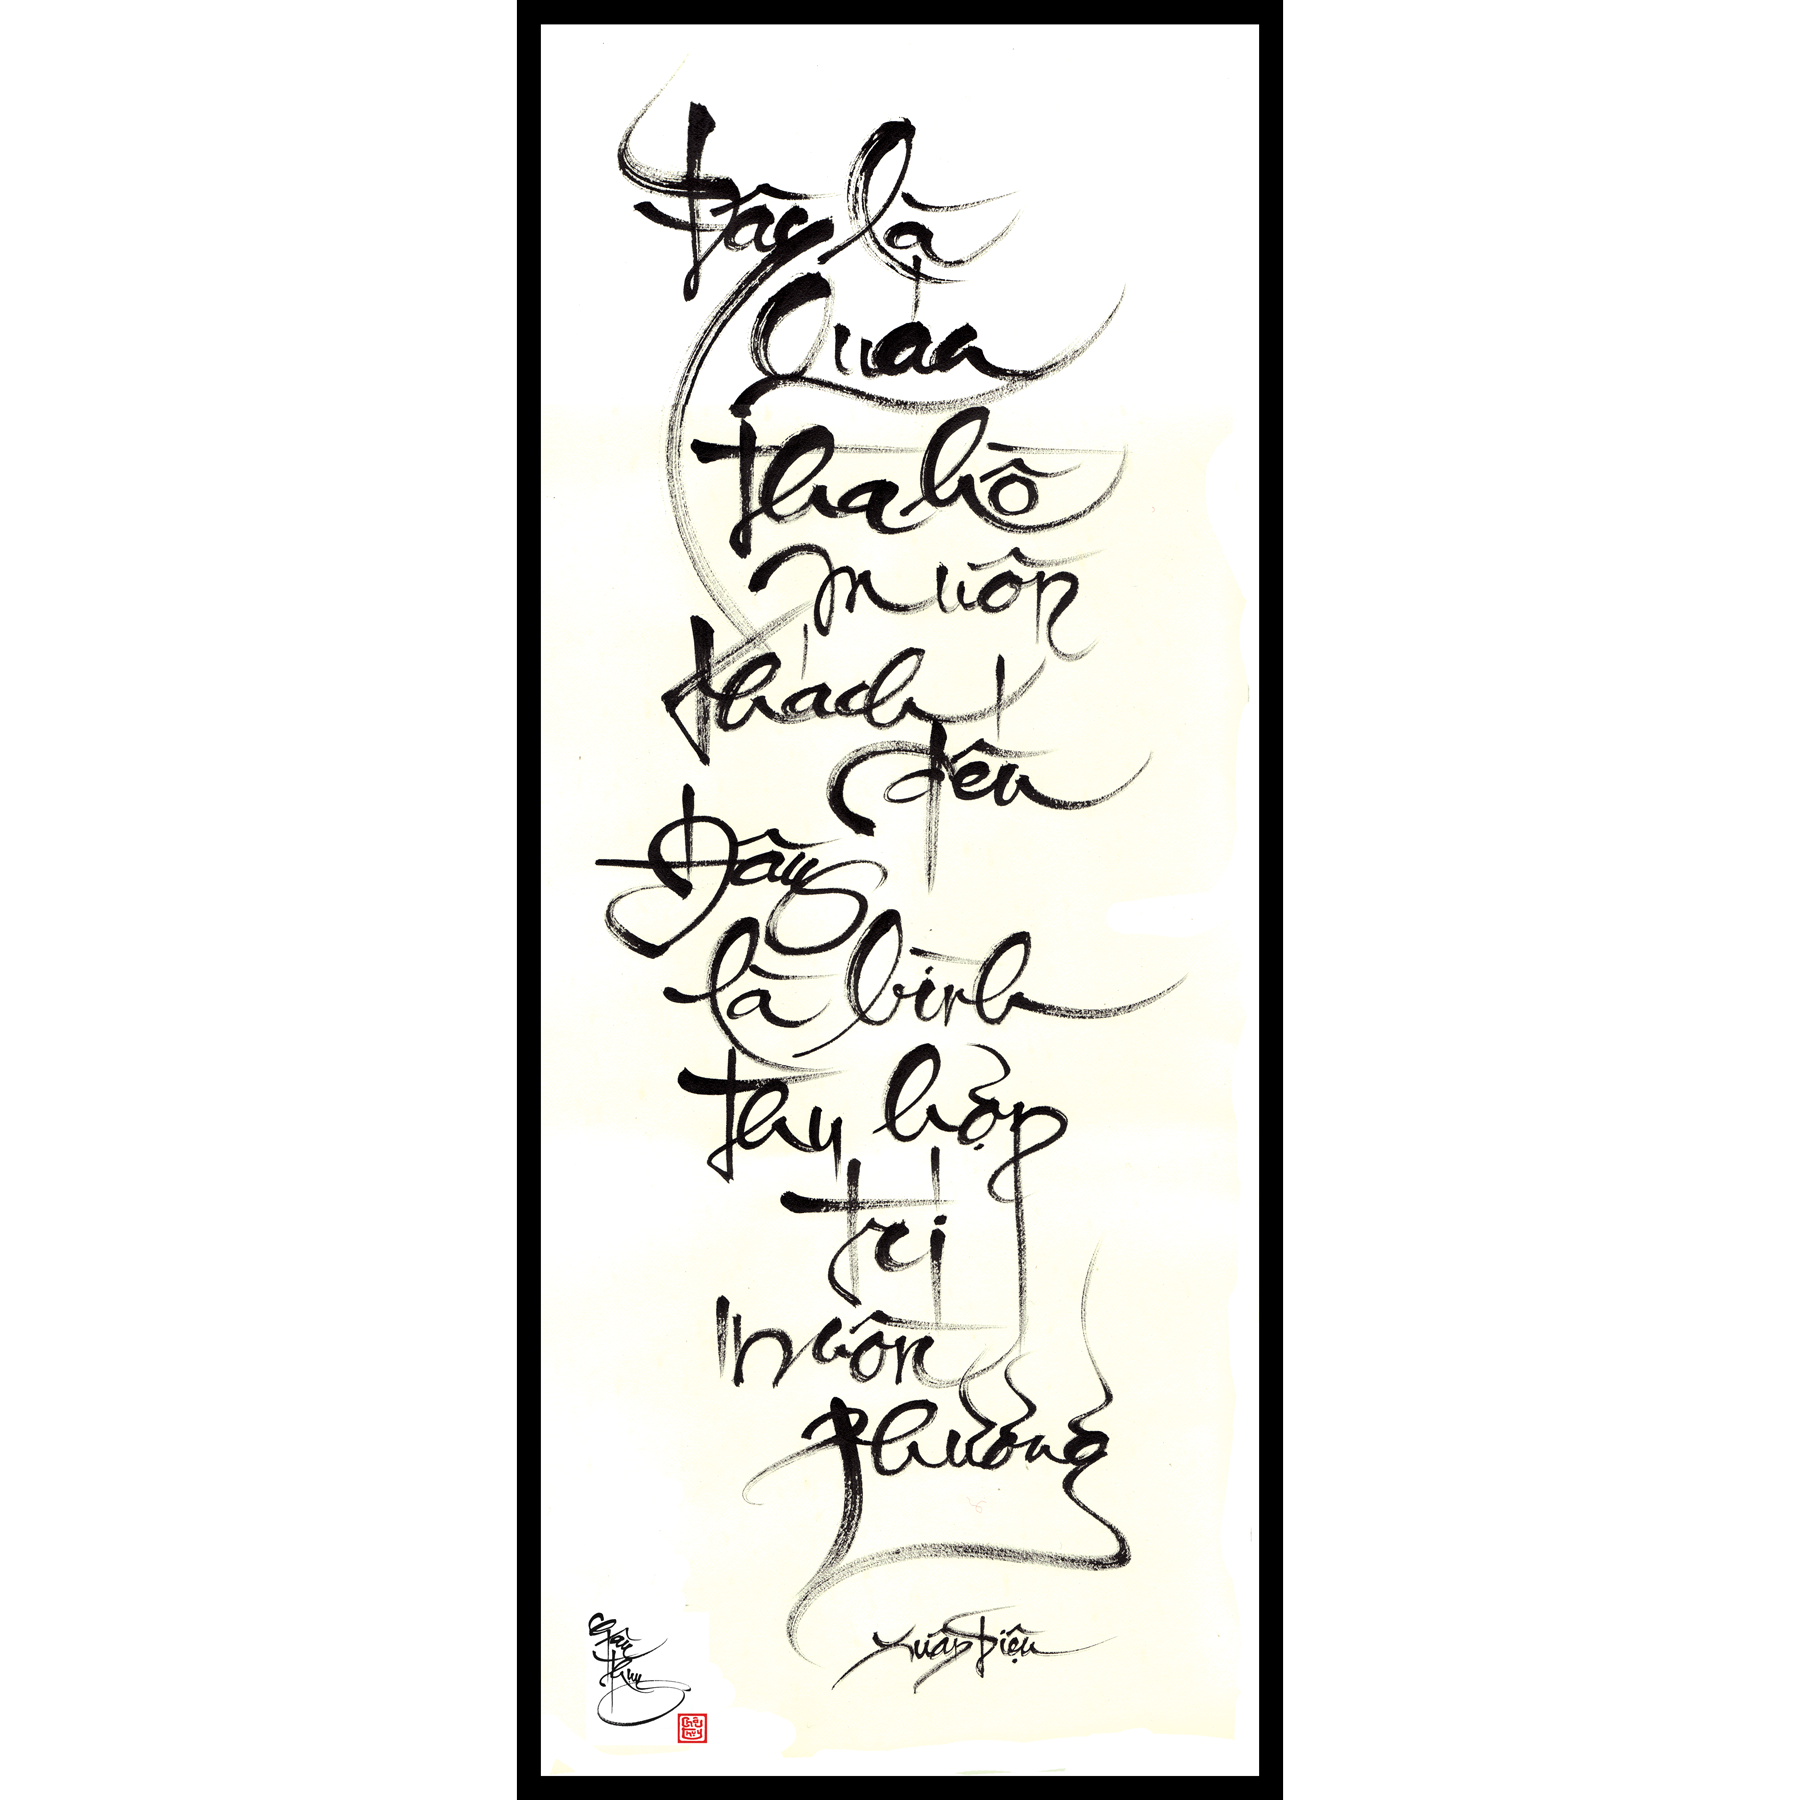 Đây là
Quán
tha hồ
muôn
khách
đến
Đây
là bình
thu hợp
trí
muôn
phương
Xuân Diệu
Châu
Thủy